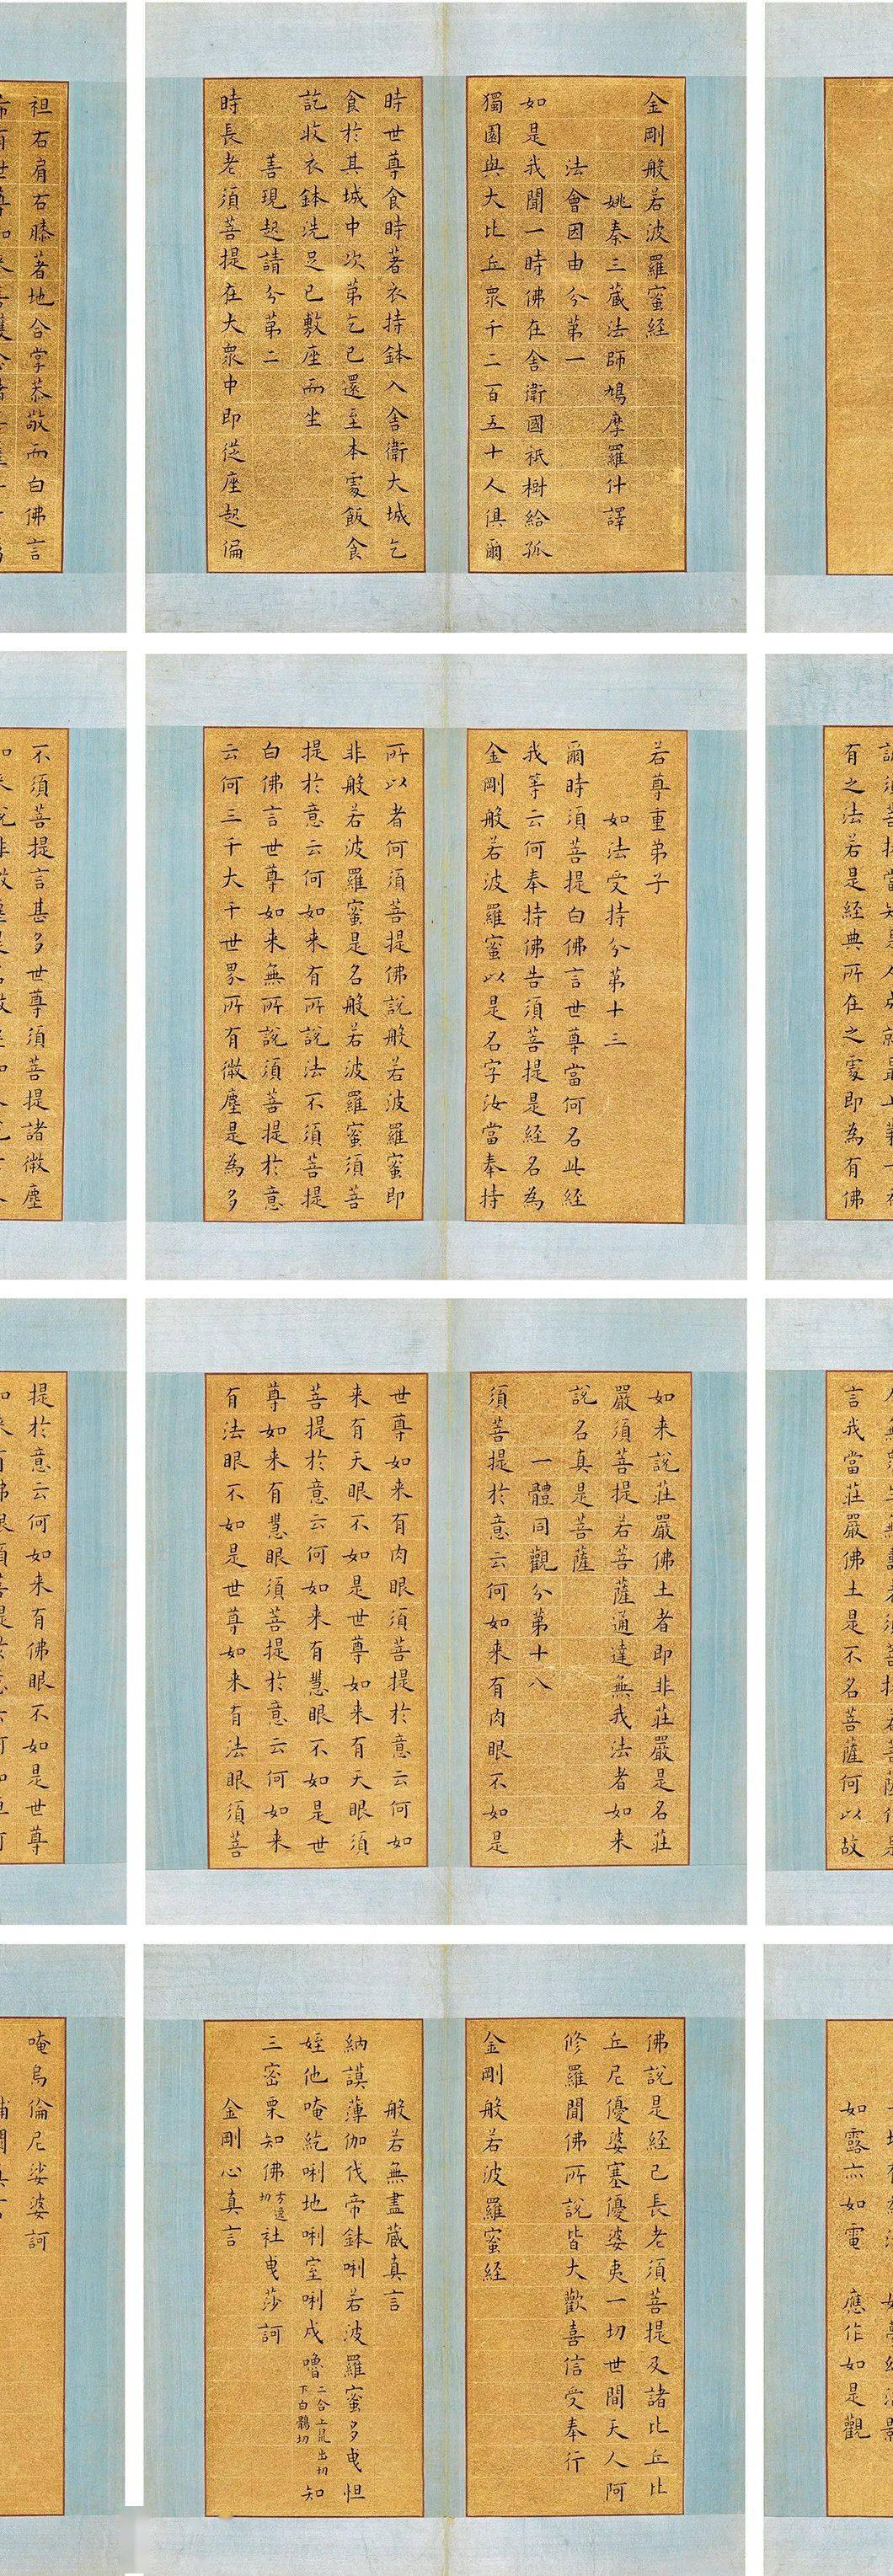 金剛般若波羅蜜經
姚秦三藏法師鳩摩羅什譯
法會因由分第一
如是我聞一時佛在舍衛國祇樹給孤
獨園與大比丘眾千二百五十人俱爾
時世尊食時著衣持鉢入舍衛大城乞
食於其城中次第乞已還至本處飯食
訖收衣鉢洗足已敷座而坐
善現起請分第二
時長老須菩提在大眾中即從座起偏
袒右肩右膝著地合掌恭敬而白佛言
有之法若是經典所在之處即為有佛
若尊重弟子
如法受持分第十三
爾時須菩提白佛言世尊當何名此經
我等云何奉持佛告須菩提是經名為
金剛般若波羅蜜以是名字汝當奉持
所以者何須菩提佛說般若波羅蜜即
非般若波羅蜜是名般若波羅蜜須菩
提於意云何如来有所說法不須菩提
白佛言世尊如来無所說須菩提於意
云何三千大千世界所有微塵是為多
不須菩提言甚多世尊須菩提諸微塵
言我當莊嚴佛土是不名菩薩何以故
如来說莊嚴佛土者即非莊嚴是名莊
嚴須菩提若菩薩通達無我法者如来
說名真是菩薩
一體同觀分第十八
須菩提於意云何如来有肉眼不如是
世尊如来有肉眼須菩提於意云何如
来有天眼不如是世尊如来有天眼須
菩提於意云何如来有慧眼不如是世
尊如来有慧眼須菩提於意云何如来
有法眼不如是世尊如来有法眼須菩
提於意云何如来有佛眼不如是世尊
如露亦如電 應作如是觀
佛說是經已長老須菩提及諸比丘比
丘尼優婆塞優婆夷一切世間天人阿
修羅聞佛所說皆大歡喜信受奉行
金剛般若波羅蜜經
般若無盡藏真言
納謨薄伽伐帝鉢唎若波羅蜜多曳怛
姪他唵紇唎地唎室唎戍嚕知
三密栗知佛社曳莎訶
金剛心真言
唵烏倫尼娑婆訶